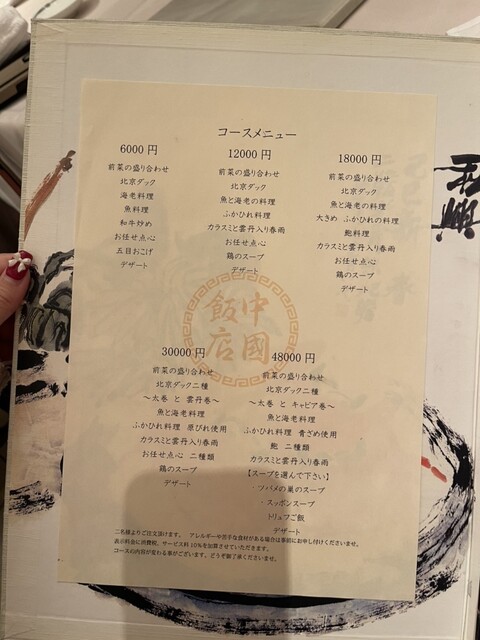 コースメニュー
6000 円
前菜の盛り合わせ
北京ダック
海老料理
魚料理
和牛炒め
お任せ点心
五目おこげ
デザート
12000 円
前菜の盛り合わせ
北京ダック
魚と海老の料理
ふかひれ料理
カラスミと雲丹入り春雨
お任せ点心
鶏のスープ
デザート
18000 円
前菜の盛り合わせ
北京ダック
魚と海老の料理
大きめ ふかひれの料理
鮑料理
カラスミと雲丹入り春雨
お任せ点心
鶏のスープ
デザート
中國飯店
30000 円
前菜の盛り合わせ
北京ダック二種
～太巻 と 雲丹巻～
魚と海老料理
ふかひれ料理 原びれ使用
カラスミと雲丹入り春雨
お任せ点心 二種類
鶏のスープ
デザート
48000 円
前菜の盛り合わせ
北京ダック二種
～太巻 と キャビア巻～
魚と海老料理
ふかひれ料理 青ざめ使用
鮑 二種類
カラスミと雲丹入り春雨
【スープを選んで下さい】
・ツバメの巣のスープ
・スッポンスープ
トリュフご飯
デザート
二名様よりご注文頂けます。 アレルギーや苦手な食材がある場合は事前にお申し付けくださいませ。
表示料金に消費税、サービス料 10%を加算させていただきます。
コースの内容が変わる事がございます。どうぞ御了承くださいませ。